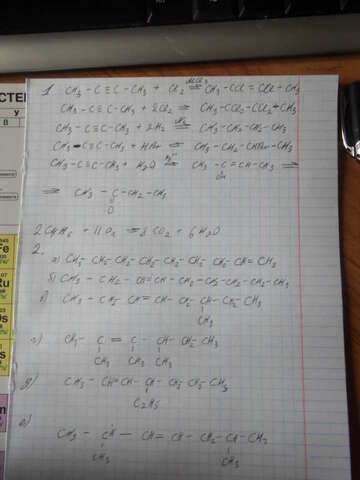 1. CH₃ - C ≡ C - CH₃ + Cl₂ AlCl₃ ⇌ CH₃ - CCl = CCl - CH₃
CH₃ - C ≡ C - CH₃ + 2Cl₂ ⇌ CH₃ - CCl₂ - CCl₂ - CH₃
CH₃ - C ≡ C - CH₃ + 2H₂ ⇌ CH₃ - CH₂ - CH₂ - CH₃
CH₃ - C ≡ C - CH₃ + HBr ⇌
CH₃ - C ≡ C - CH₃ + H₂O ⇌ CH₃ - C = CH - CH₃ ⇒
OH
⇒ CH₃ - C - CH₂ - CH₃
O
+ 11O₂ = 8 CO₂ + 6 H₂O
2.
а) CH₃ - CH₂ - CH₂ - CH₂ - CH₂ - CH₂ - CH = CH₃
б) CH₃ - CH₂ - CH = CH - CH₂ - CH₂ - CH₂ - CH₃
в) CH₃ - CH₂ - CH = CH - CH₂ - CH - CH₂ - CH₃
CH₃
г) CH₃ - C = C - CH - CH₂ - CH₃
CH₃ CH₃ CH₃
д) CH₃ - CH = CH - CH - CH₂ - CH₂ - CH₃
C₂H₅
е) CH₃ - CH - CH = CH - CH₂ - CH - CH₃
CH₃ CH₃
Fe
Ru
Os